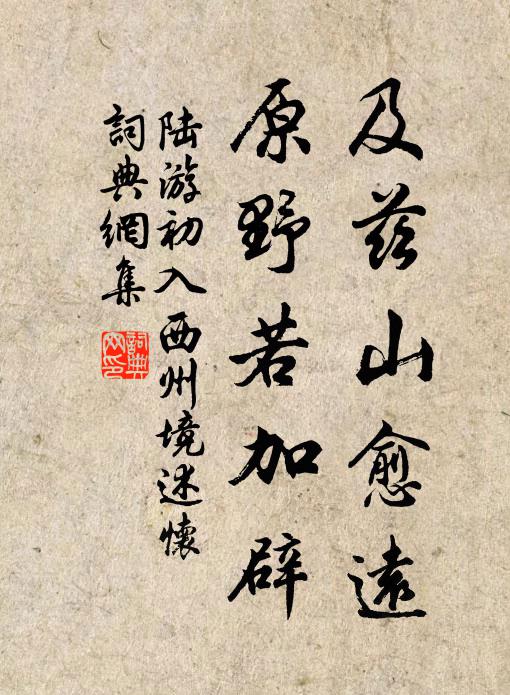 及茲山愈遠
原野若加辟
陸游初入西州境述懷
詞典網集
詞典網印